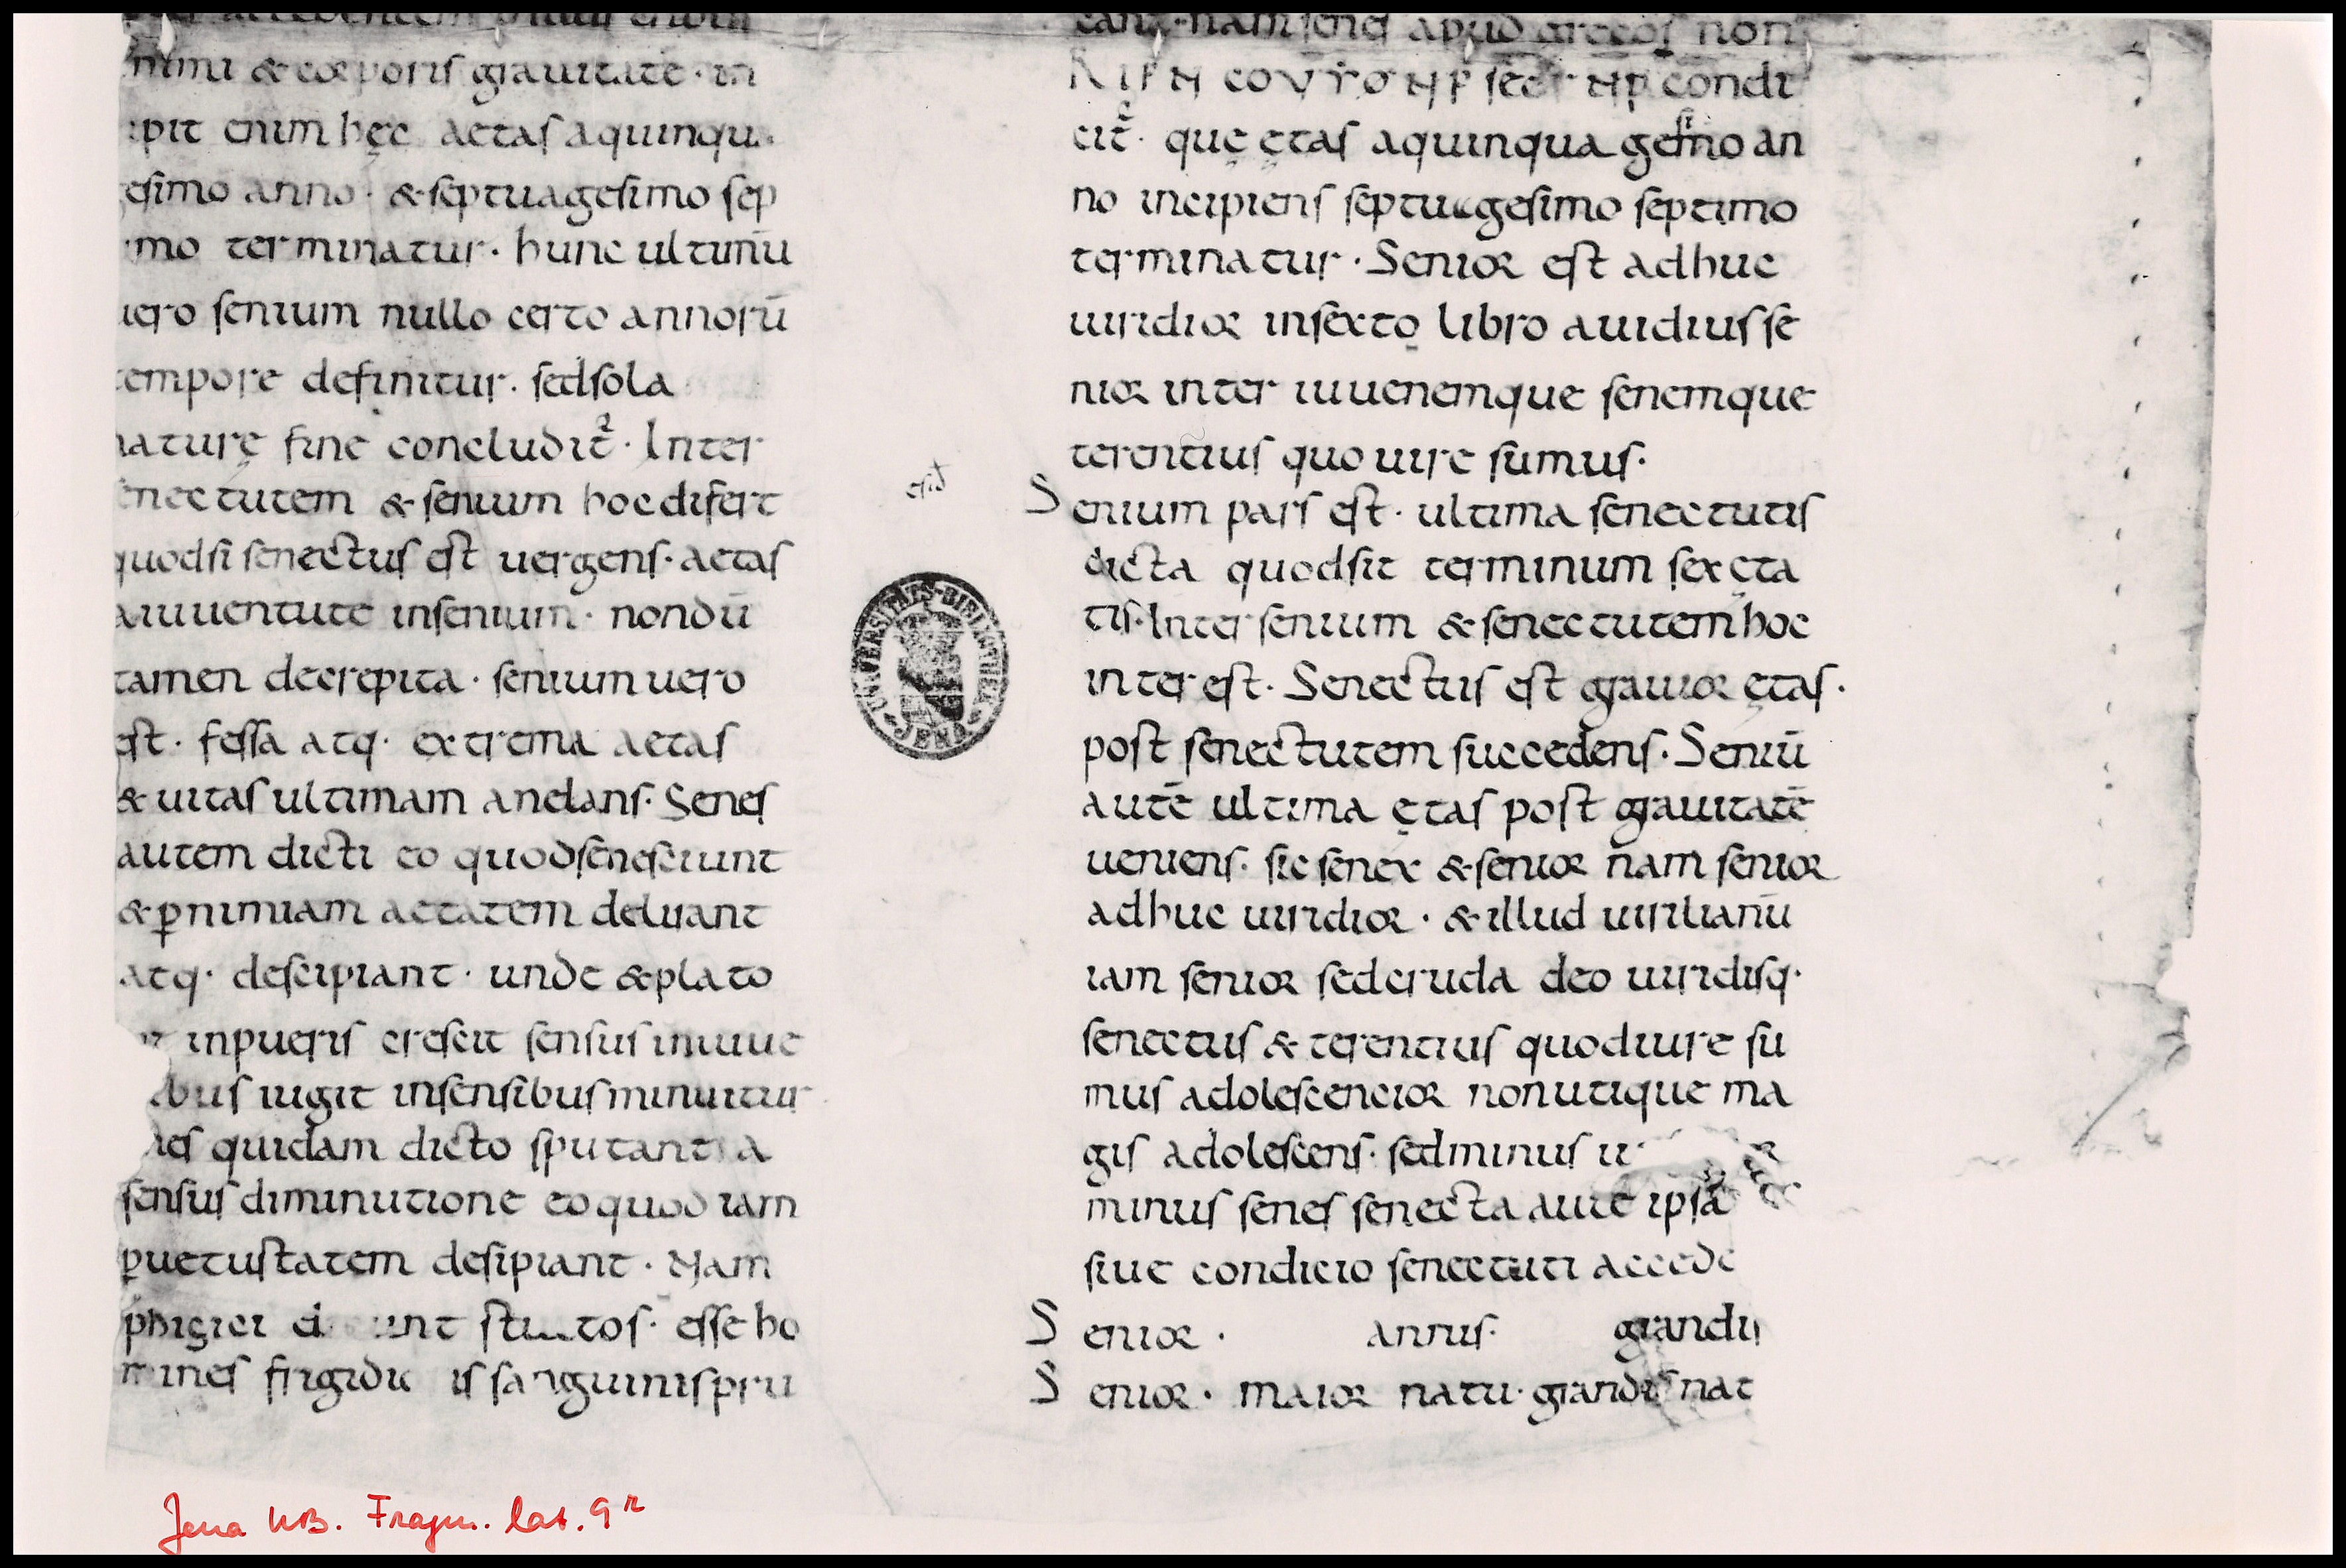 accedentem
nimi & corporis grauitate · in
cipit enim hęc aetas aquinqua
gesimo anno · & septuagesimo sep
timo terminatur · hunc ultimū
uero senium nullo certo annorū
tempore definitur · sedsola
naturę fine concludit᷑ · Inter
senectutem & senium hoc difert
quodsi senectus est uergens · aetas
aiuuentute insenium · nondū
tamen decrepita · senium uero
est · fessa atq· extrema aetas
& uitas ultimam anelans · Senes
autem dicti eo quodsenesciunt
& ꝑnimiam aetatem delirant
atq· descipiant · unde & plato
inpueris crescit sensus iniuue
bus uigit insensibus minuitur
quidam dicto sputant a
sensus diminutione eo quod iam
ꝑuetustatem desipiant · Nam
phisici dicunt stultos · esse ho
mines frigidi is sanguinis pru
cant · nam senes apud grecos non
sec condi
cit᷑ · quę ętas aquinqua gesimo an
no incipiens septuagesimo septimo
terminatur · Senior est adhuc
uiridior insexto libro auidius se
nior inter iuuenemque senemque
terentius quo uire sumus ·
Senium pars est · ultima senectutis
dicta quodsit terminum sex ęta
tis · Inter senium & senectutem hoc
inter est · Senectus est grauior ętas ·
post senectutem succedens · Seniū
autē ultima ętas post grauitatē
ueniens · sic senex & senior nam senior
adhuc uiridior · & illud uirilianū
iam senior sedcruda deo uiridisq·
senectus & terentius quodiure su
mus adolescencior nonutique ma
gis adolescens · sedminus
minus senes senecta aute ipsa
siue condicio senectuti accede
Senior · annus · grandi
Senior · maior natu · grandis nat
Jena UB. Fragm. lat. 9ʳ
UNIVERSITÄTS-BIBLIOTHEK JENA